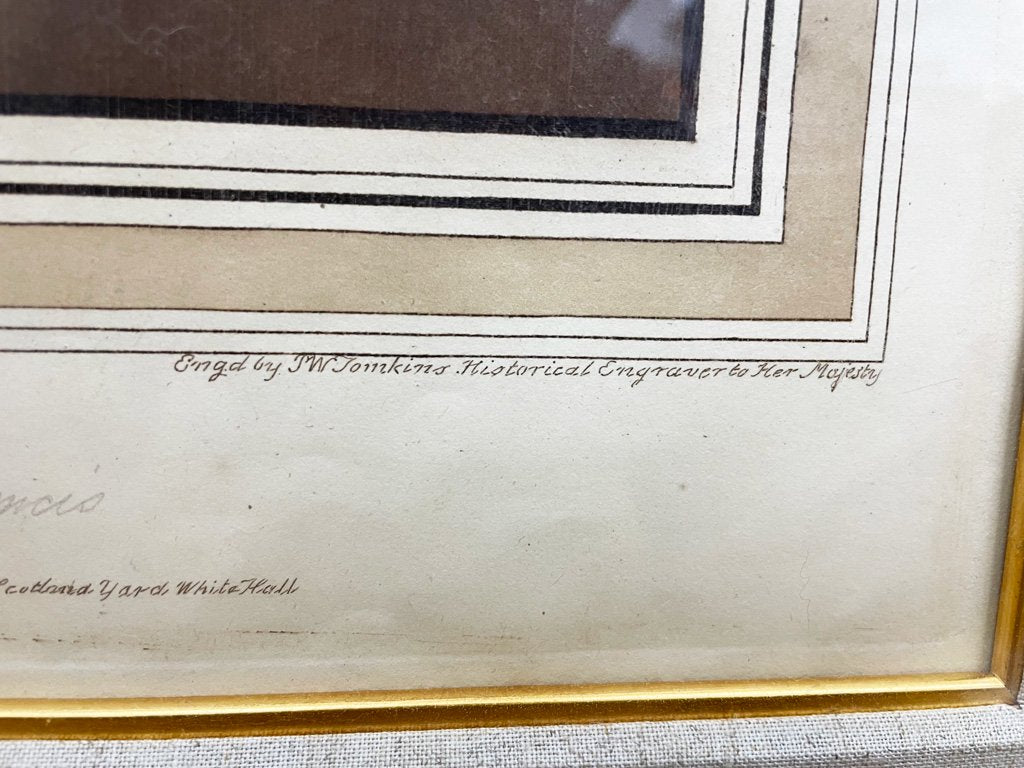 Engd by PW Tomkins Historical Engraver to Her Majesty
Scotland Yard White Hall